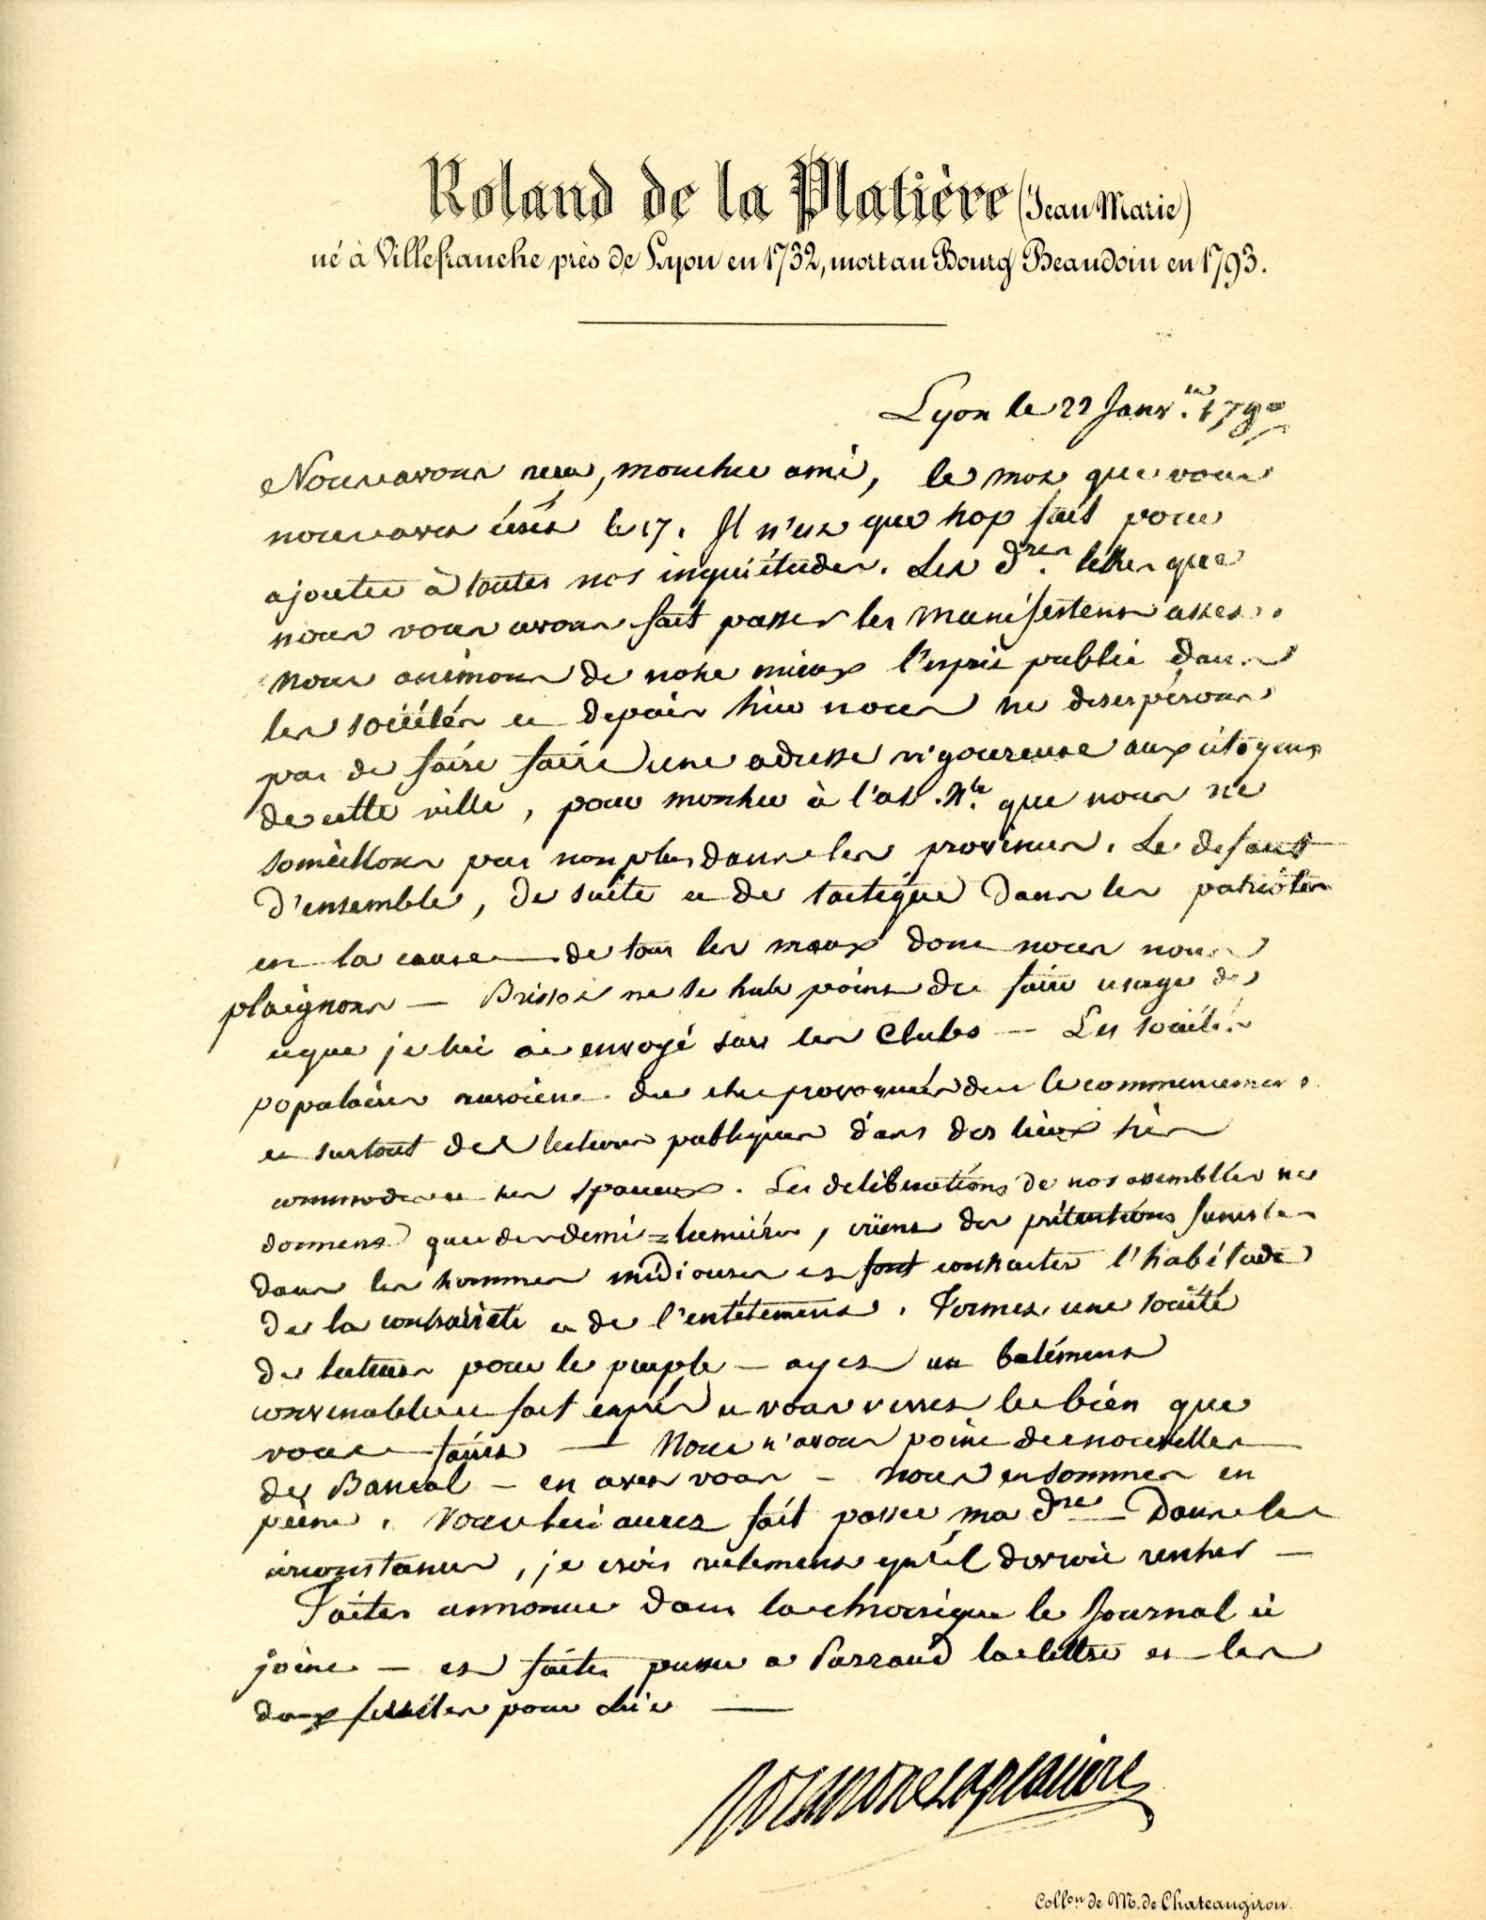 Roland de la Platière (Jean Marie)
né à Villefranche près de Lyon en 1732, mort au Bourg Beaudoin en 1793.
Lyon le 22 Janv.
Nous avons reçu, mon cher ami, le mot que vous
nous avez écrit le 17. Il n'est que trop fait pour
ajouter à toutes nos inquiétudes. Les d.res lettres que
nous vous avons fait passer les manifestent assez.
nous animons de notre mieux l'esprit public dans
les sociétés et depuis hier nous ne desespérons
pas de faire faire une adresse vigoureuse aux citoyens
de cette ville, pour montrer à l'as. N.le que nous ne
someillons pas non plus dans les provinces. Le defaut
d'ensemble, de suite et de tactique dans les patriotes
est la cause de tous les maux dont nous nous
plaignons — Brissot ne se hate point de faire usage de
ce que je lui ai envoyé sur les Clubs — Les sociétés
populaires auroient du etre provoquées des le commencement
et surtout des lectures publiques dans des lieux très
commodes et très spacieux. Les deliberations de nos assemblées ne
donnent que des demi=lumières, créent des prétentions funestes
dans les hommes médiocres et font contracter l'habitude
de la contrariété et de l'entêtement. Formez une société
de lectures pour le peuple — ayez un batiment
convenable et fait exprès et vous verrez le bien que
vous faites — Nous n'avons point de nouvelles
de Bancal — en avez vous — nous en sommes en
peine. Vous lui aurez fait passer ma d.re Dans les
circonstances, je crois reelement qu'il devroit rentrer —
Faites annoncer dans la chronique le Journal ci
joint — et faites passer a Parraud la lettre et les
deux feuilles pour lui —
Rolanddelaplatiere
Coll.on de M. de Chateaugiron.